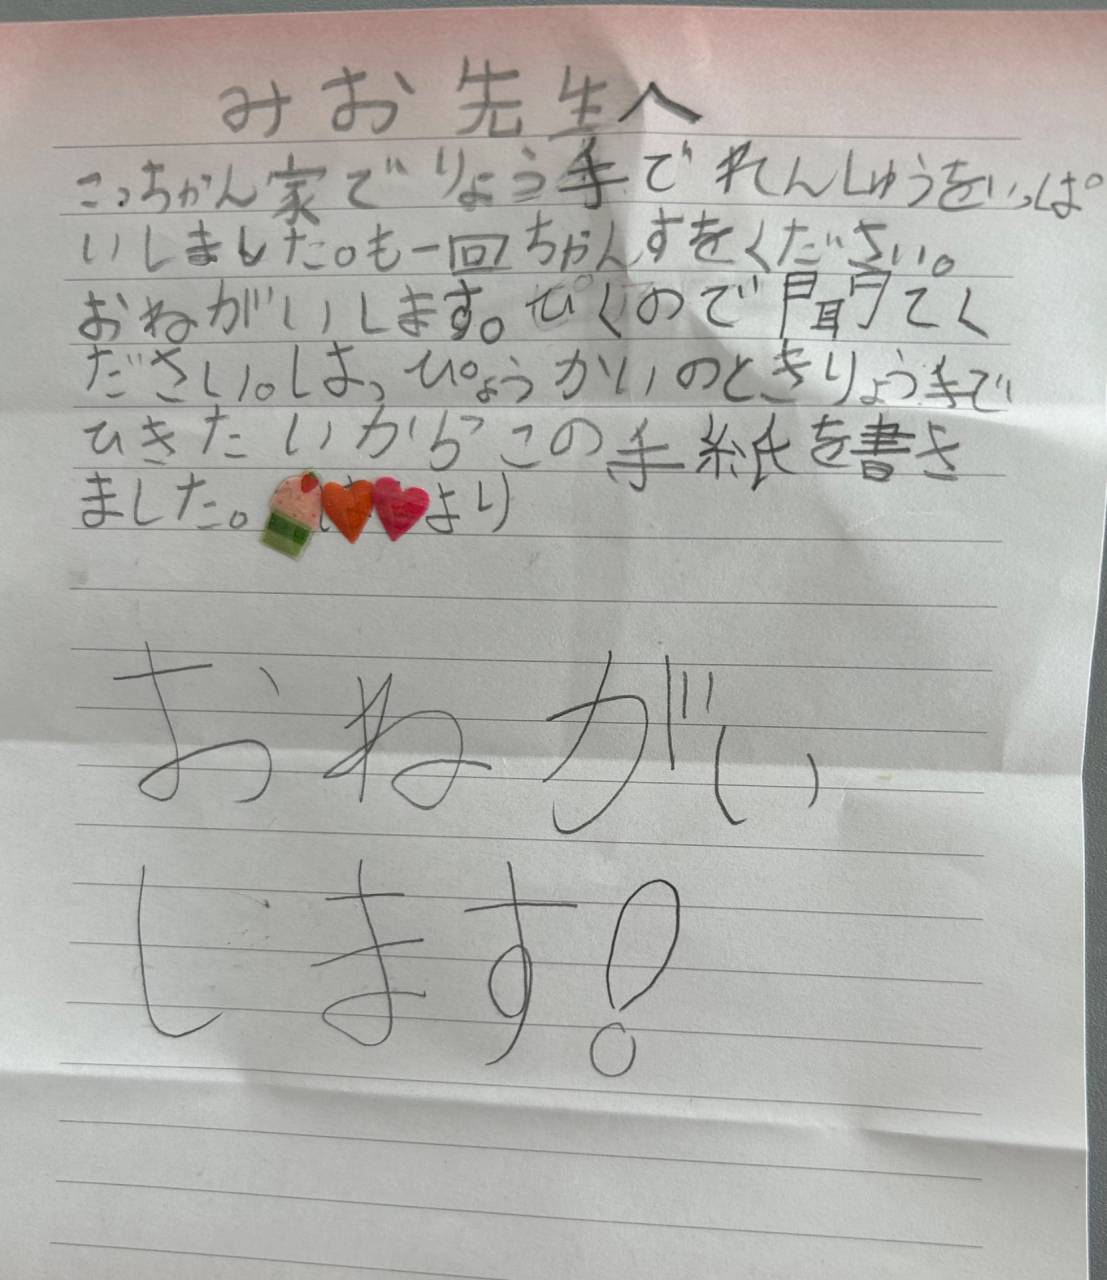 みお先生へ
こっちゃん家でりょう手でれんしゅうをいっぱ
いしました。も一回ちゃんすをください。
おねがいします。ぴくので聞てく
ださい。はっぴょうかいのときりょう手で
ひきたいからこの手紙を書き
ました。より
おねがい
します!